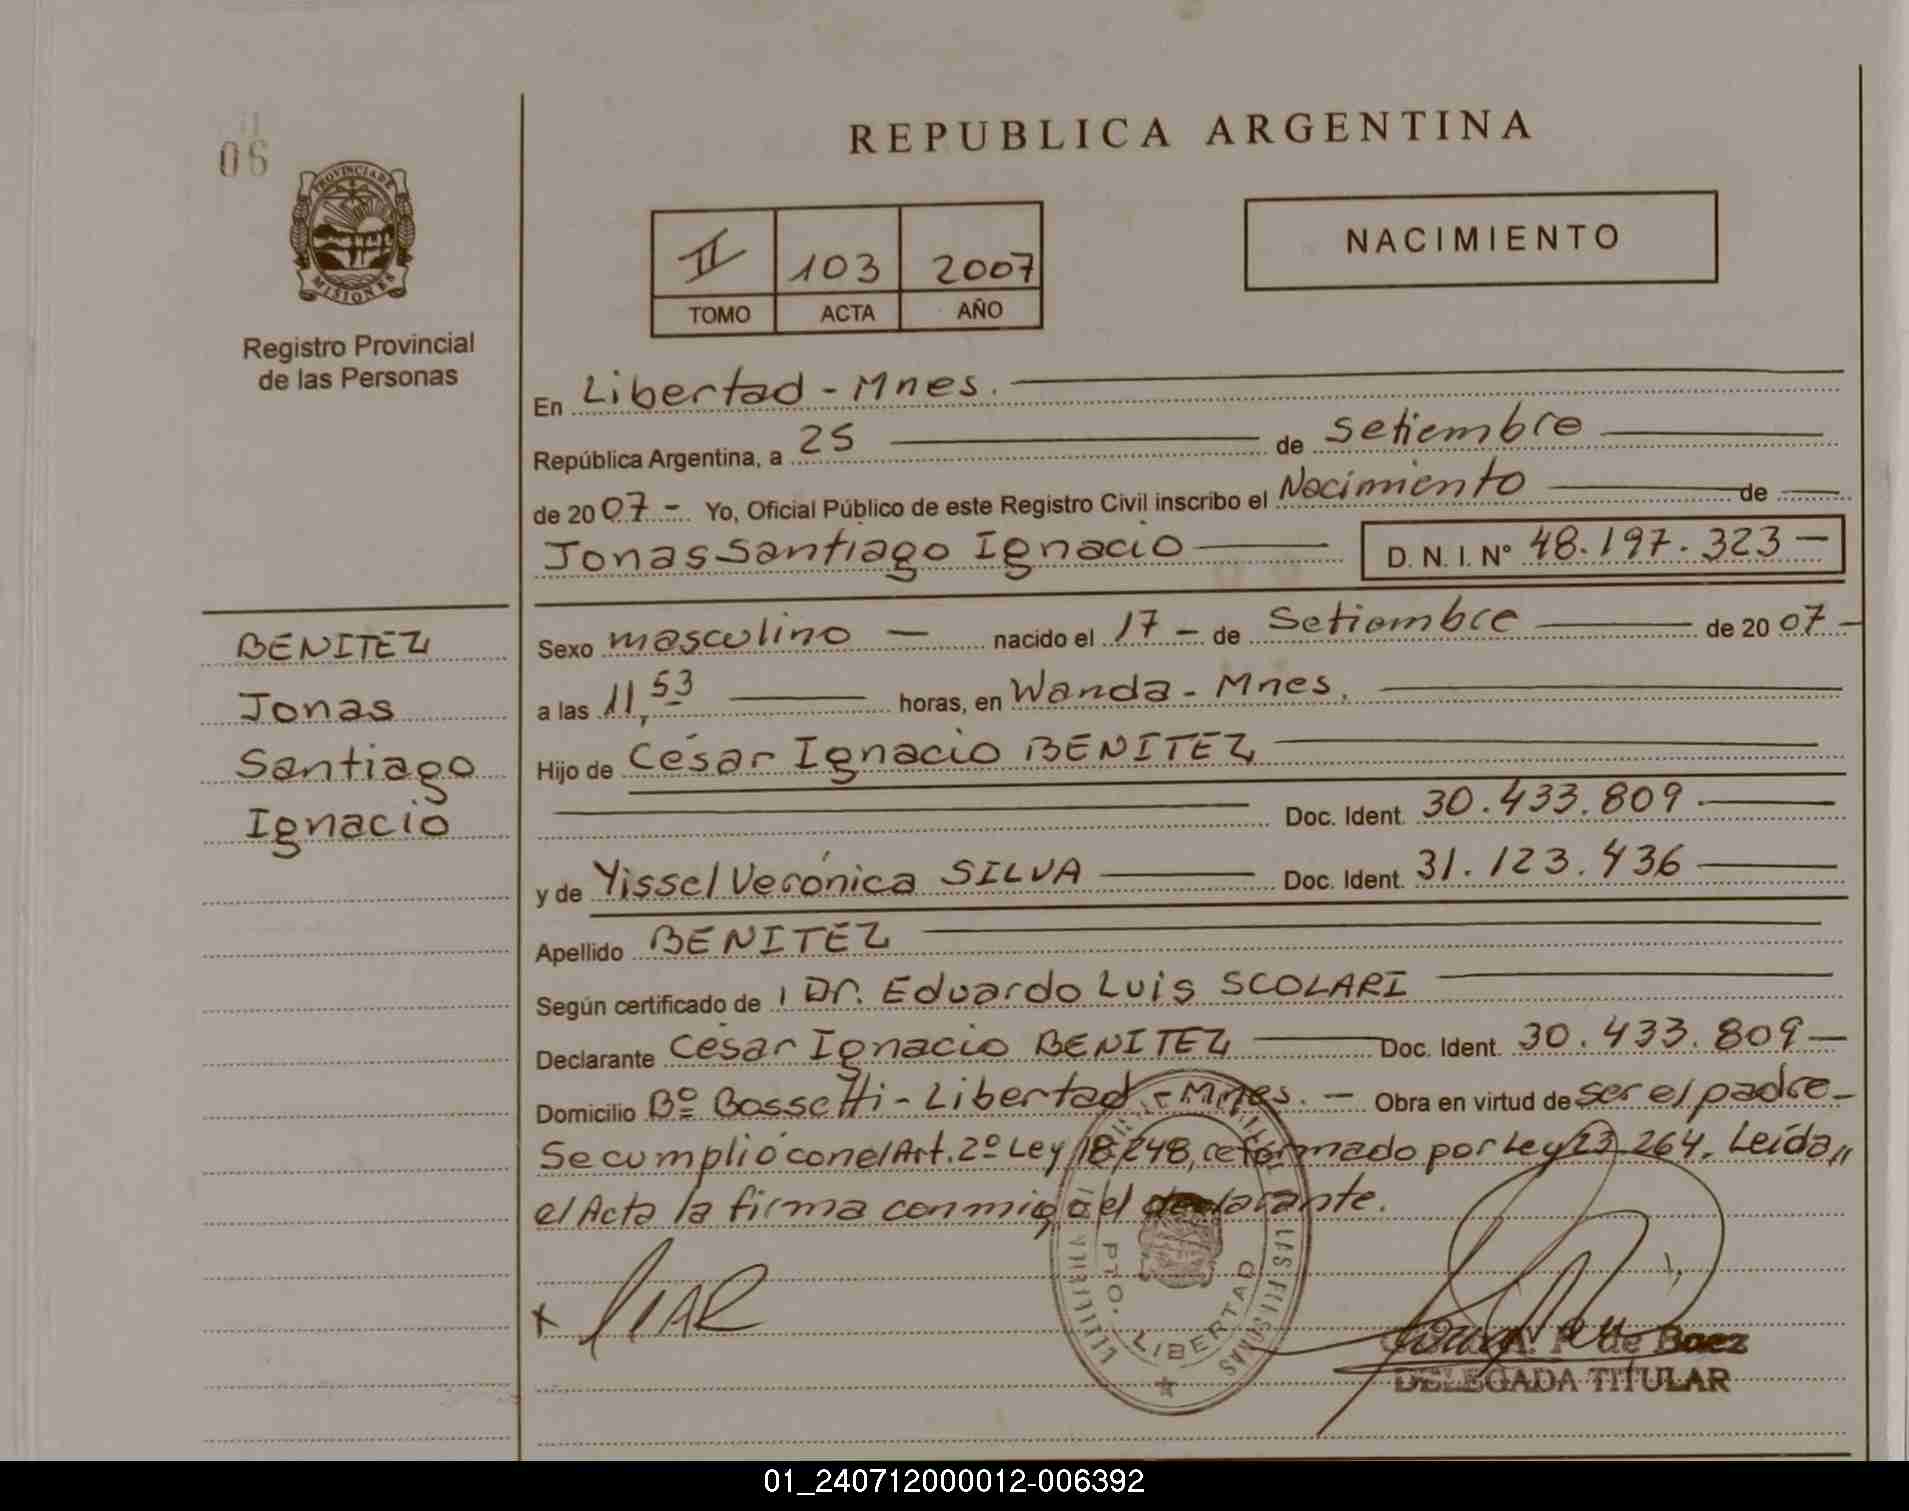 06
PROVINCIA DE
MISIONES
Registro Provincial
de las Personas
REPUBLICA ARGENTINA
II 103 2007
TOMO ACTA AÑO
NACIMIENTO
En Libertad - Mnes.
República Argentina, a 25 de Setiembre
de 2007 - Yo, Oficial Público de este Registro Civil inscribo el Nacimiento de
Jonas Santiago Ignacio D. N. I. N° 48.197.323 -
BENITEZ
Jonas
Santiago
Ignacio
Sexo masculino - nacido el 17 - de Setiembre de 2007 -
a las 11,53 horas, en Wanda - Mnes.
Hijo de César Ignacio BENITEZ
Doc. Ident. 30.433.809
y de Yissel Verónica SILVA Doc. Ident. 31.123.436
Apellido BENITEZ
Según certificado de Dr. Eduardo Luis SCOLARI
Declarante César Ignacio BENITEZ Doc. Ident. 30.433.809 -
Domicilio Bº Bossetti - Libertad - Mnes. - Obra en virtud de ser el padre -
Se cumplió con el Art. 2º Ley 18.248, reformado por Ley 23.264. Leída
el Acta la firma conmigo el declarante.
PTO. LIBERTAD
de Baez
DELEGADA TITULAR
01_240712000012-006392